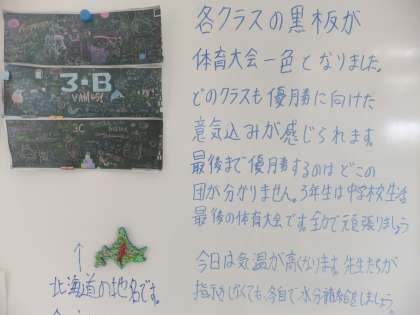 3-B
3C
各クラスの黒板が
体育大会一色となりました。
どのクラスも優勝に向けた
意気込みが感じられます。
最後まで優勝するのはどこの
団か分かりません。3年生は中学校生活
最後の体育大会です。全力で頑張りましょう
今日は気温が高くなります。先生たちが
指示しなくても、各自で水分補給をしましょう。
↑
北海道の地名です。